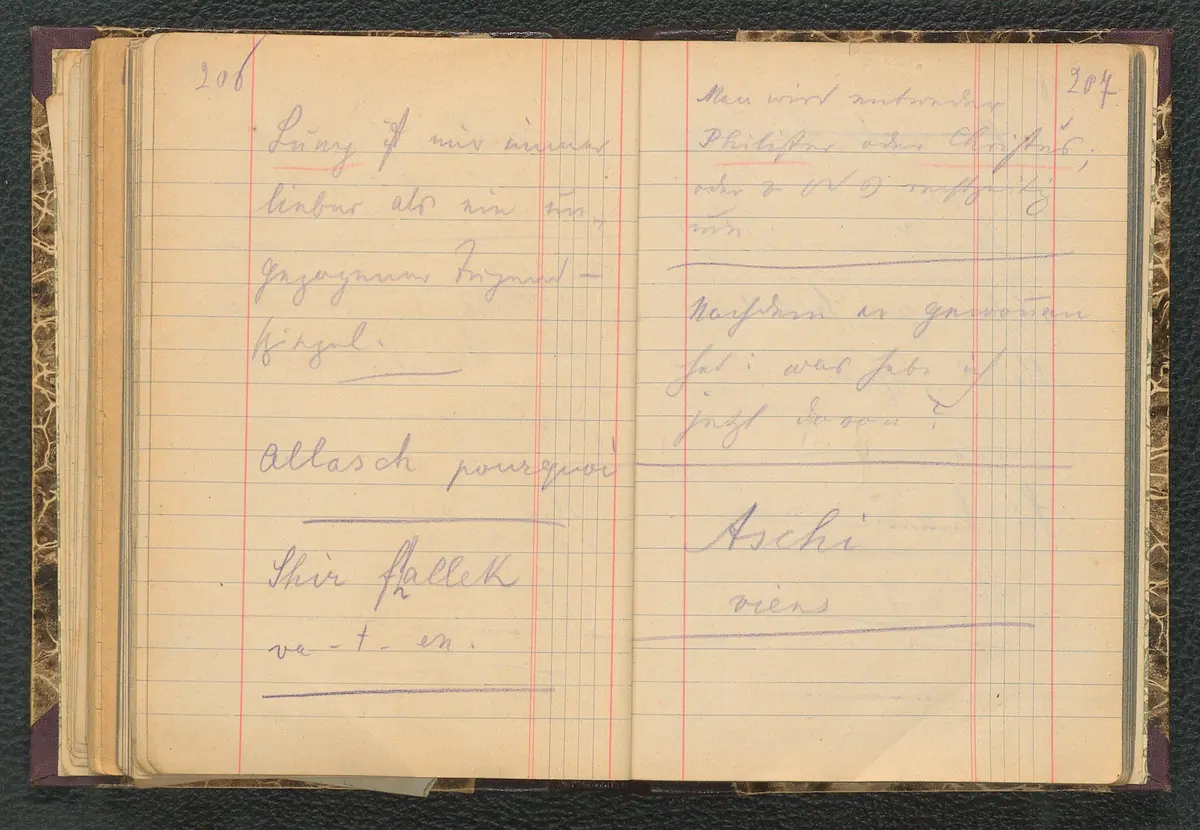 206
Lump ist mir immer
lieber als ein un-
gezogener Tugend-
spiegel.
Allasch pourquoi
Shir fhallek
va-t-en.
207
Man wird entweder
Philister oder Christus,
oder rechtzeitig
Nachdem er gewonnen
hat: was habe ich
jetzt davon?
Aschi
viens